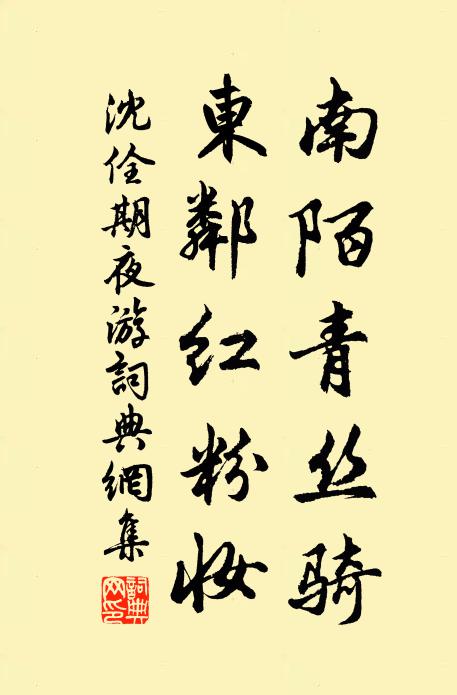 南陌青丝骑
東鄰红粉妆
沈佺期夜游詞典網集
詞典网印